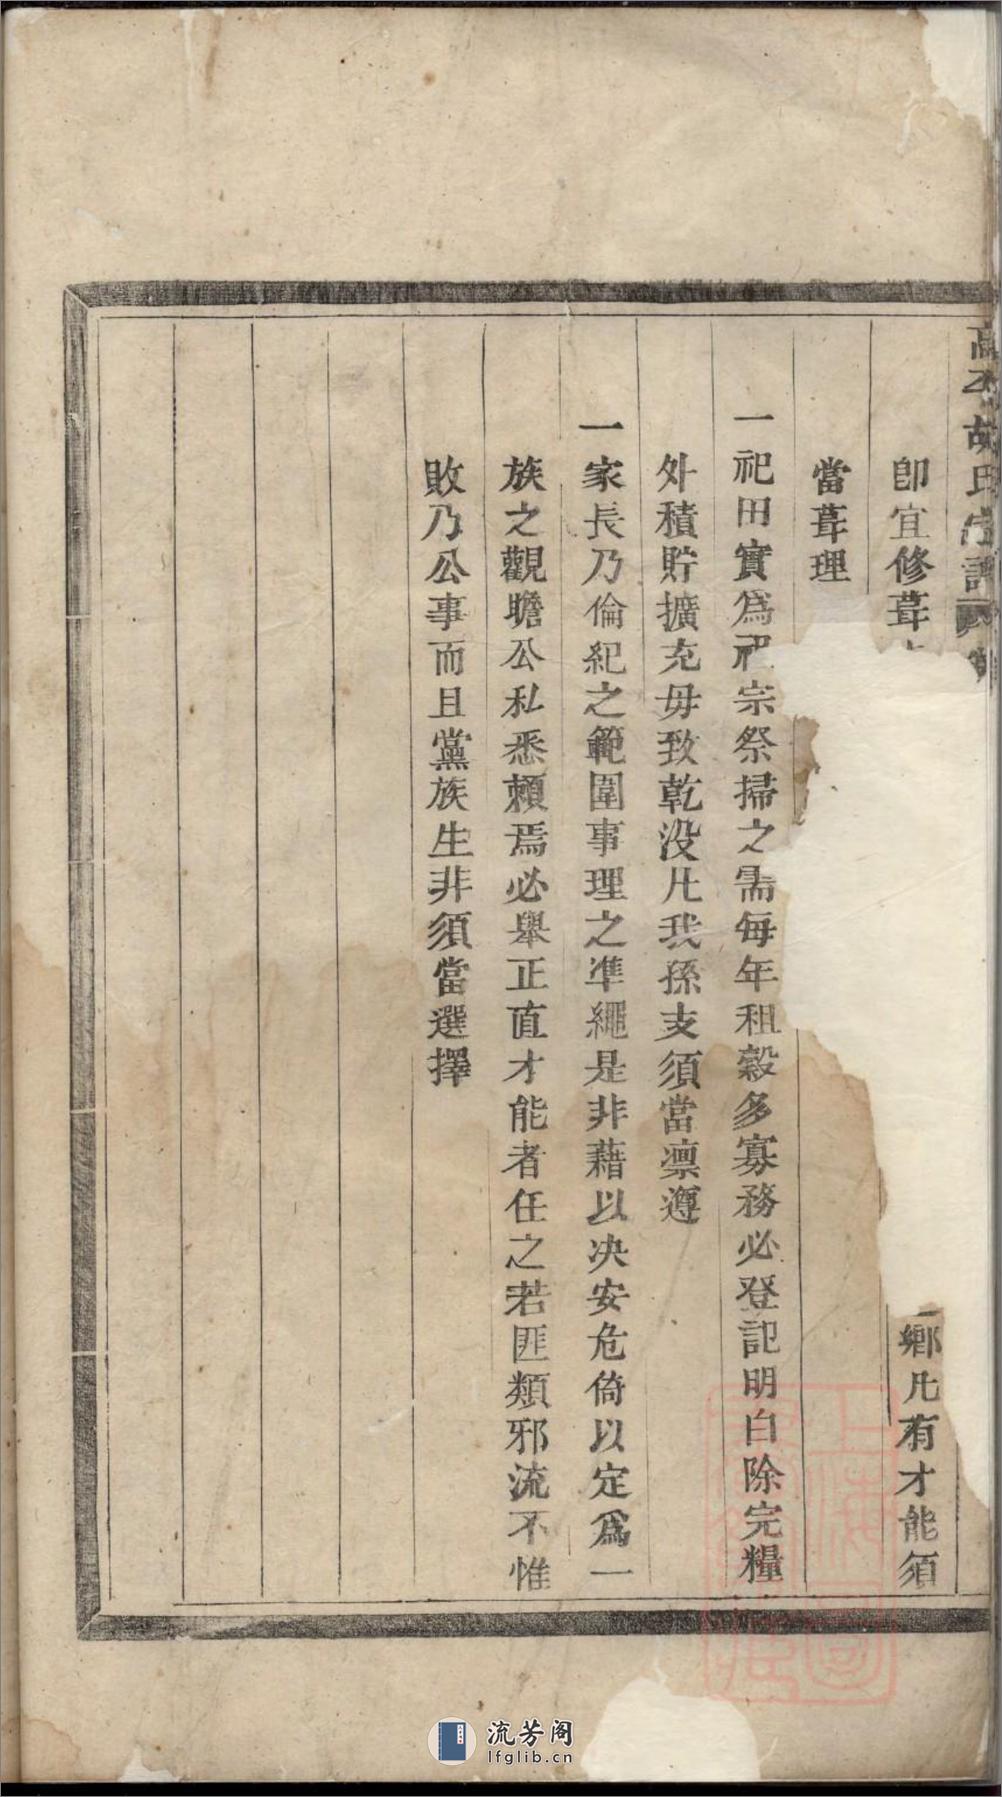 高平胡氏宗譜
卽宜修葺
鄉凡有才能須
當葺理
一祀田實爲祀宗祭掃之需每年租穀多寡務必登記明白除完糧
外積貯擴充毋致乾没凡我孫支須當凛遵
一家長乃倫紀之範圍事理之準繩是非藉以决安危倚以定爲一
族之觀瞻公私悉賴焉必舉正直才能者任之若匪類邪流不惟
敗乃公事而且黨族生非須當選擇
流芳阁
lfglib.cn